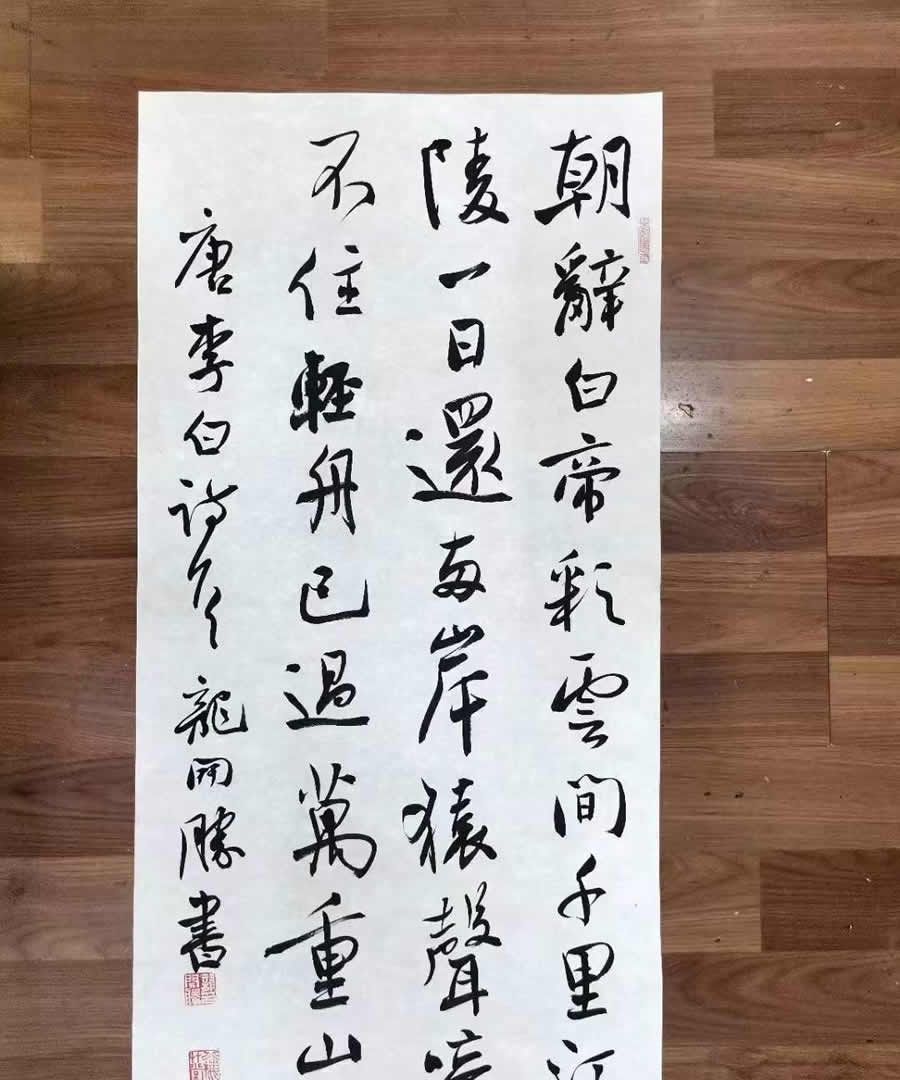 朝辭白帝彩雲間千里江
陵一日還两岸猿聲啼
不住輕舟已過萬重山
唐李白詩句龍開勝書